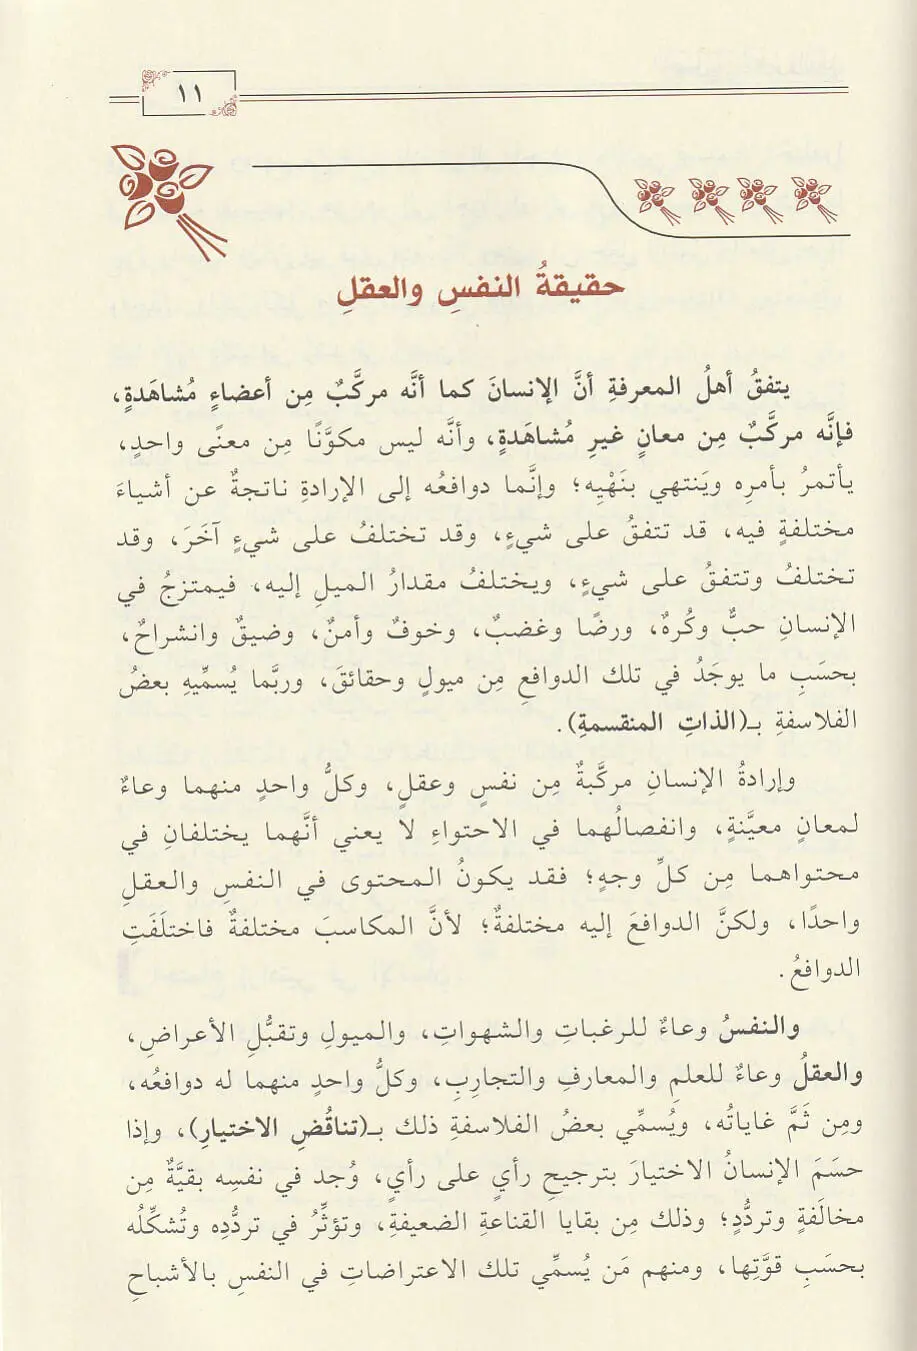 ١١
حقيقةُ النفسِ والعقلِ
يتفقُ أهلُ المعرفةِ أنَّ الإنسانَ كما أنَّه مركَّبٌ مِن أعضاءٍ مُشاهَدةٍ،
فإنَّه مركَّبٌ مِن معانٍ غيرِ مُشاهَدةٍ، وأنَّه ليس مكوَّنًا مِن معنًى واحدٍ،
يأتمرُ بأمرِه ويَنتهي بنَهْيِه؛ وإنَّما دوافعُه إلى الإرادةِ ناتجةٌ عن أشياءَ
مختلفةٍ فيه، قد تتفقُ على شيءٍ، وقد تختلفُ على شيءٍ آخَرَ، وقد
تختلفُ وتتفقُ على شيءٍ، ويختلفُ مقدارُ الميلِ إليه، فيمتزجُ في
الإنسانِ حبٌّ وكُرهٌ، ورضًا وغضبٌ، وخوفٌ وأمنٌ، وضيقٌ وانشراحٌ،
بحسَبِ ما يوجَدُ في تلك الدوافعِ مِن ميولٍ وحقائقَ، وربَّما يُسمِّيهِ بعضُ
الفلاسفةِ بـ(الذاتِ المنقسمةِ).
وإرادةُ الإنسانِ مركَّبةٌ مِن نفسٍ وعقلٍ، وكلُّ واحدٍ منهما وعاءٌ
لمعانٍ معيَّنةٍ، وانفصالُهما في الاحتواءِ لا يعني أنَّهما يختلفانِ في
محتواهما مِن كلِّ وجهٍ؛ فقد يكونُ المحتوى في النفسِ والعقلِ
واحدًا، ولكنَّ الدوافعَ إليه مختلفةٌ؛ لأنَّ المكاسبَ مختلفةٌ فاختلَفَتِ
الدوافعُ.
والنفسُ وعاءٌ للرغباتِ والشهواتِ، والميولِ وتقبُّلِ الأعراضِ،
والعقلُ وعاءٌ للعلمِ والمعارفِ والتجاربِ، وكلُّ واحدٍ منهما له دوافعُه،
ومِن ثَمَّ غاياتُه، ويُسمِّي بعضُ الفلاسفةِ ذلك بـ(تناقُضِ الاختيارِ)، وإذا
حسَمَ الإنسانُ الاختيارَ بترجيحِ رأيٍ على رأيٍ، وُجد في نفسِه بقيَّةٌ مِن
مخالَفةٍ وتردُّدٍ؛ وذلك مِن بقايا القناعةِ الضعيفةِ، وتؤثِّرُ في تردُّدِه وتُشكِّلُه
بحسَبِ قوَّتِها، ومنهم مَن يُسمِّي تلك الاعتراضاتِ في النفسِ بالأشباحِ